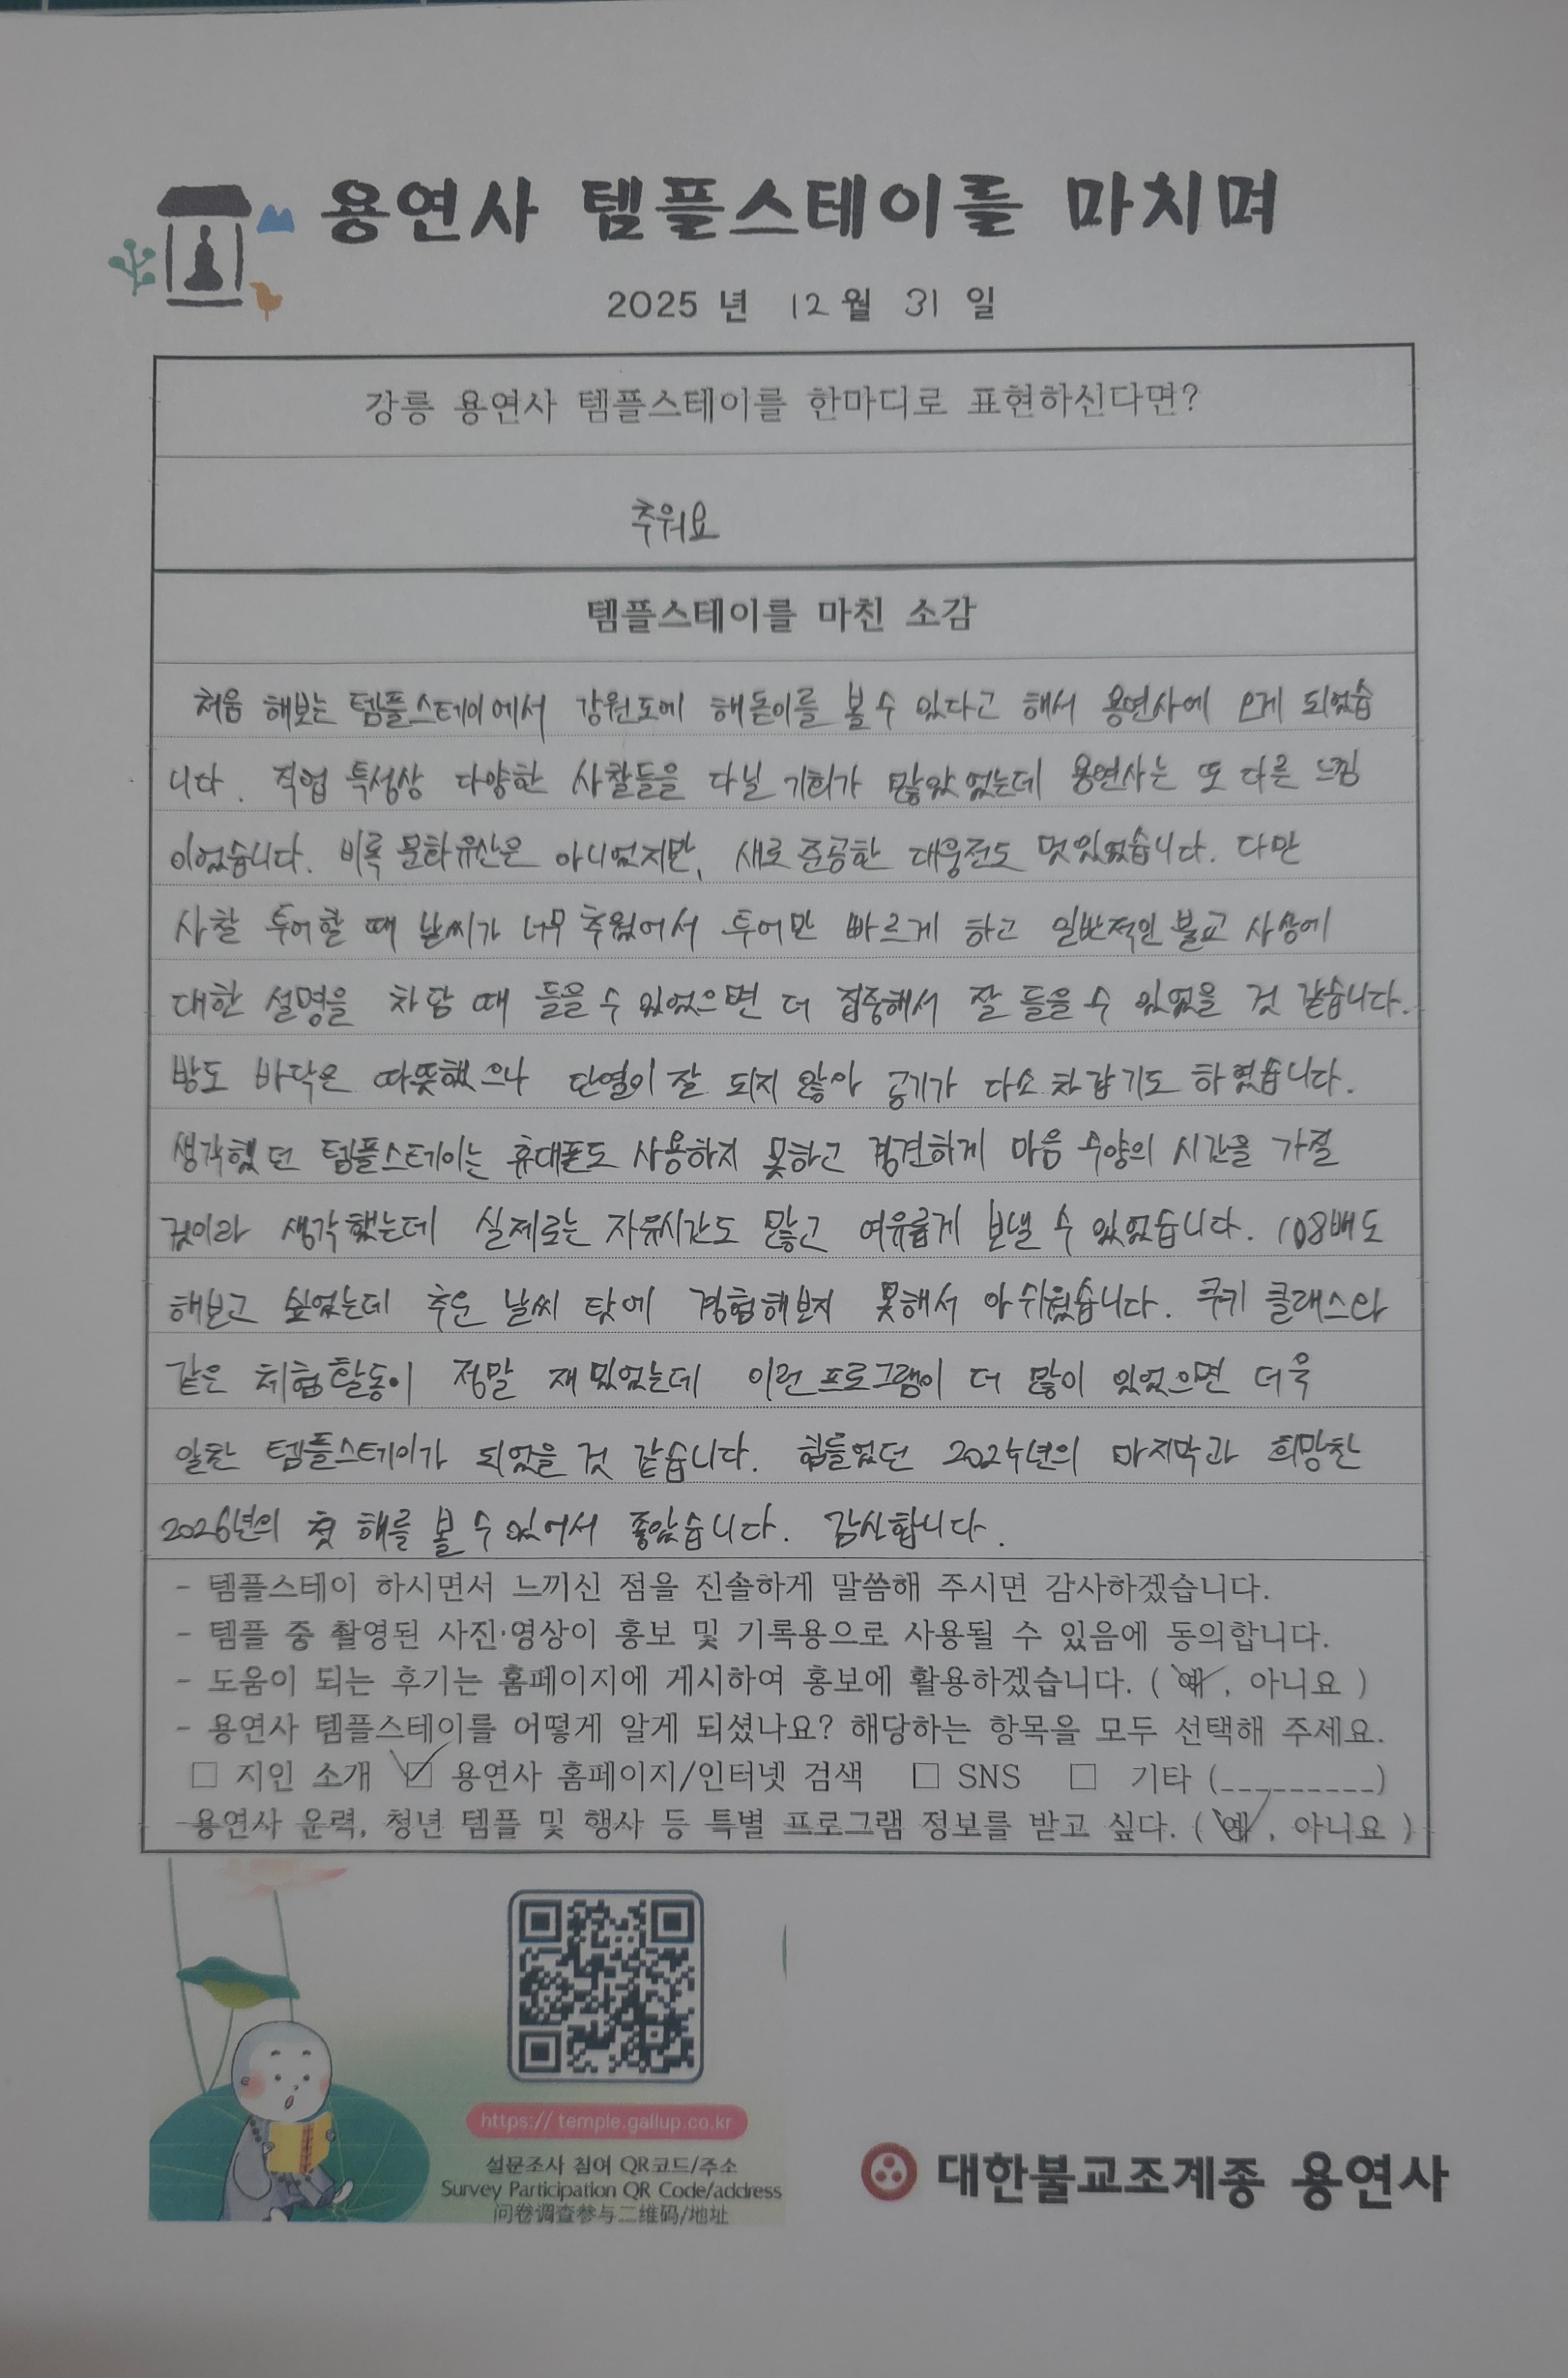 용연사 템플스테이를 마치며
2025 년 12 월 31 일
강릉 용연사 템플스테이를 한마디로 표현하신다면?
추워요
템플스테이를 마친 소감
처음 해보는 템플스테이에서 강원도에 해돋이를 볼 수 있다고 해서 용연사에 오게 되었습
니다. 직업 특성상 다양한 사찰들을 다닐 기회가 많았었는데 용연사는 또 다른 느낌
이었습니다. 비록 문화유산은 아니었지만, 새로 준공한 대웅전도 멋있었습니다. 다만
사찰 투어할 때 날씨가 너무 추웠어서 투어만 빠르게 하고 일반적인 불교 사상에
대한 설명을 차담 때 들을 수 있었으면 더 집중해서 잘 들을 수 있었을 것 같습니다.
방도 바닥은 따뜻했으나 단열이 잘 되지 않아 공기가 다소 차갑기도 하였습니다.
생각했던 템플스테이는 휴대폰도 사용하지 못하고 경건하게 마음 수양의 시간을 가질
것이라 생각했는데 실제로는 자유시간도 많고 여유롭게 보낼 수 있었습니다. 108배도
해보고 싶었는데 추운 날씨 탓에 경험해보지 못해서 아쉬웠습니다. 쿠키 클래스와
같은 체험활동이 정말 재밌었는데 이런 프로그램이 더 많이 있었으면 더욱
알찬 템플스테이가 되었을 것 같습니다. 힘들었던 2025년의 마지막과 희망찬
2026년의 첫 해를 볼 수 있어서 좋았습니다. 감사합니다.
- 템플스테이 하시면서 느끼신 점을 진솔하게 말씀해 주시면 감사하겠습니다.
- 템플 중 촬영된 사진·영상이 홍보 및 기록용으로 사용될 수 있음에 동의합니다.
- 도움이 되는 후기는 홈페이지에 게시하여 홍보에 활용하겠습니다. ( 예 , 아니요 )
- 용연사 템플스테이를 어떻게 알게 되셨나요? 해당하는 항목을 모두 선택해 주세요.
□ 지인 소개 ☑ 용연사 홈페이지/인터넷 검색 □ SNS □ 기타 (_________)
-용연사 운력, 청년 템플 및 행사 등 특별 프로그램 정보를 받고 싶다. ( 예 , 아니요 )
https:// temple.gallup.co.kr
설문조사 참여 QR코드/주소
Survey Participation QR Code/address
问卷调查参与二维码/地址
대한불교조계종 용연사